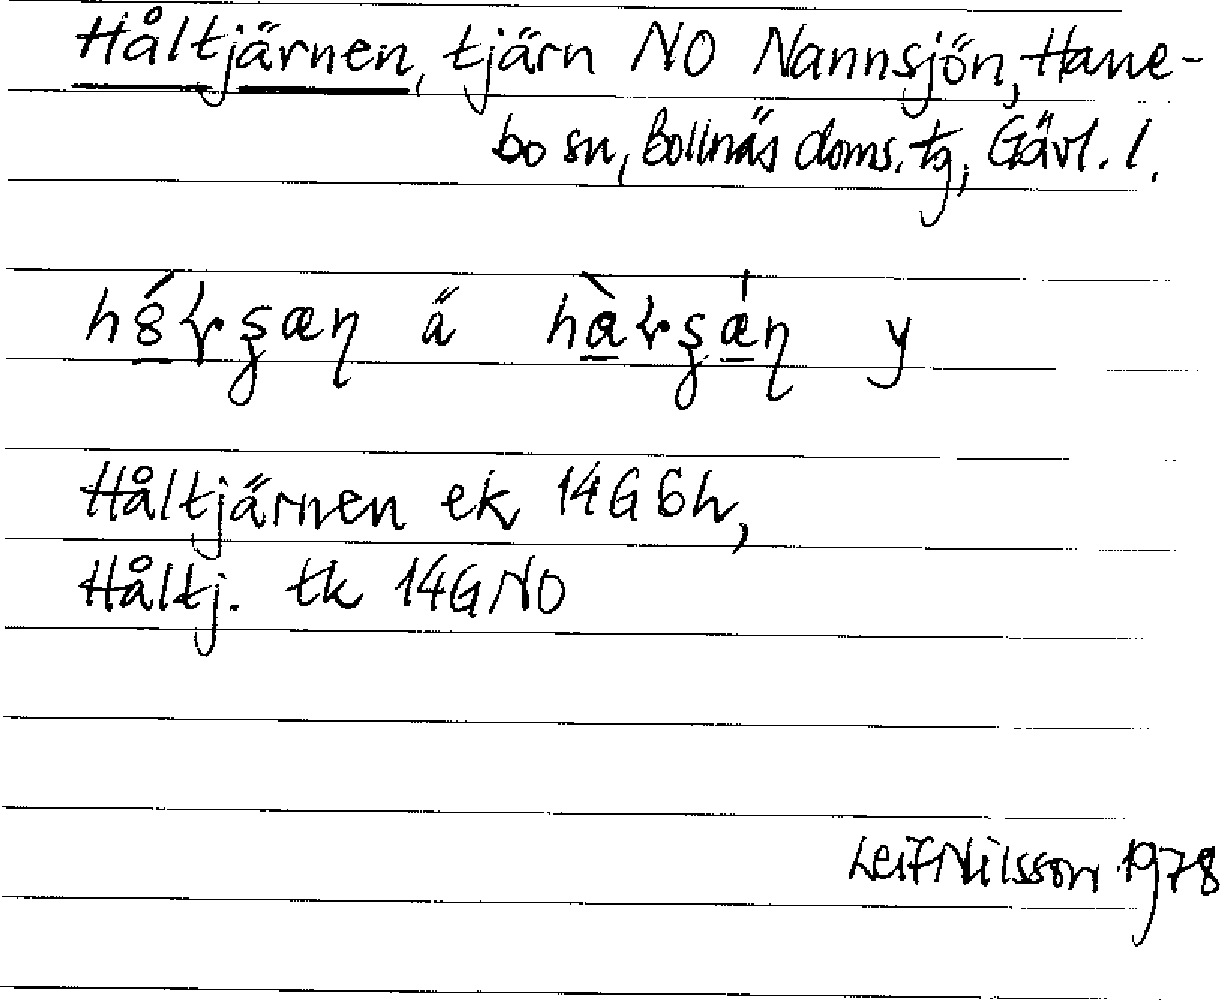 Håltjärnen, tjärn NO Nannsjön, Hane-
bo sn, Bollnäs doms. tg, Gävl. l.
ä y
Håltjärnen ek 14G 6h,
Håltj. tk 14G NO
Leif Nilsson 1978